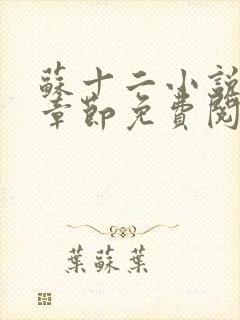 蘇十二小說
章節免費閱
葉蘇葉